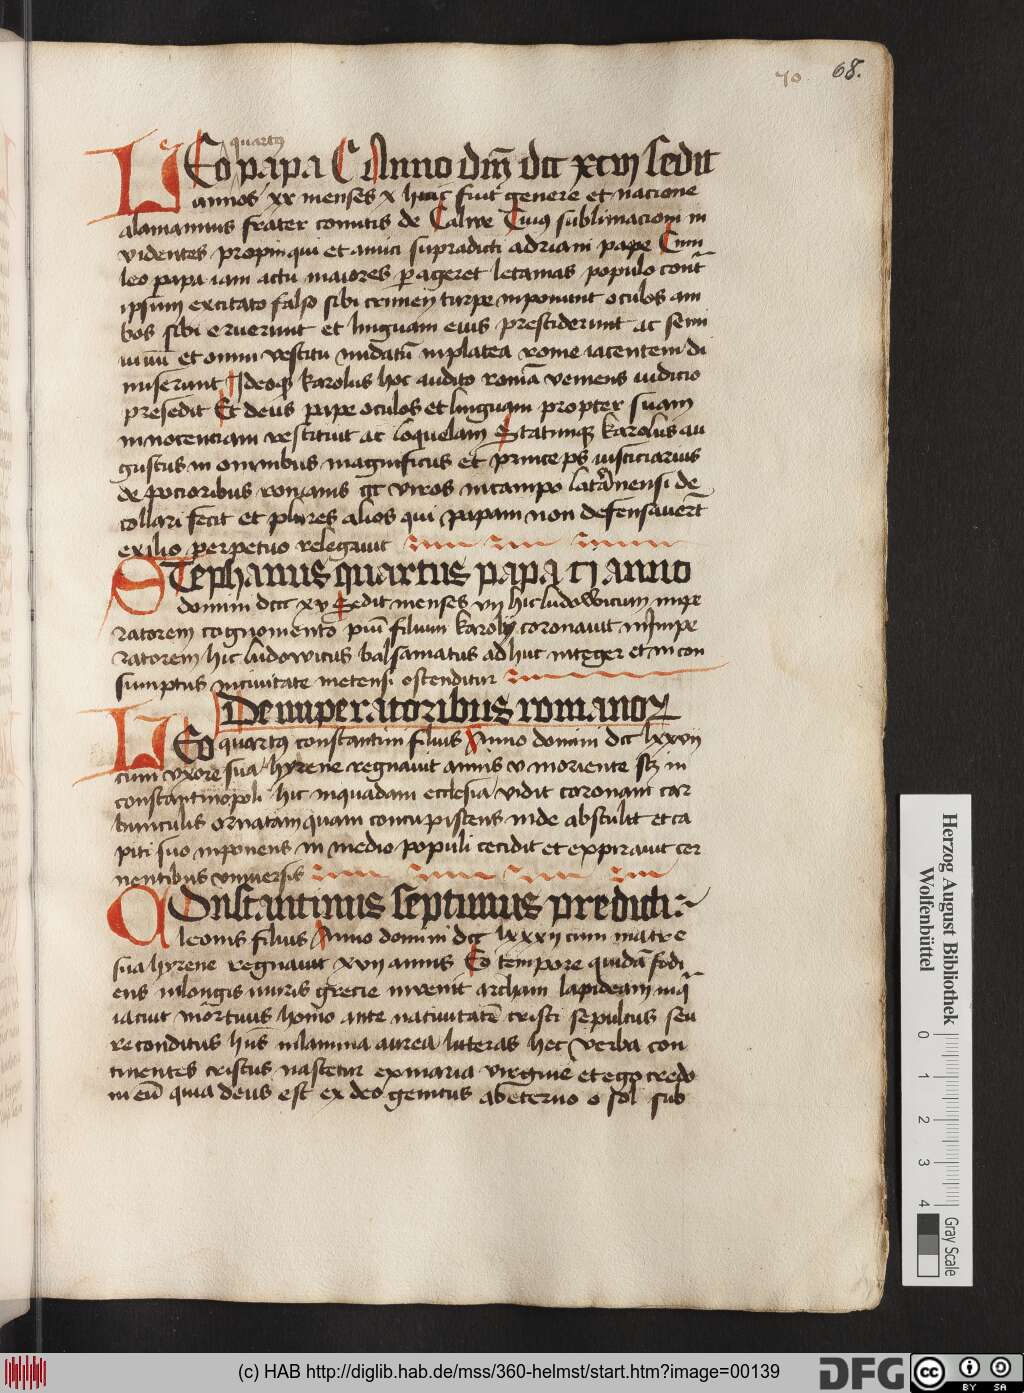 70 68.
quartus
LEo papa C Anno dm̄ dcc xcvj sedit
annos xx menses x hic fuit genere et nacione
alamannus frater comitis de Calwe Cuius sublimacioni in
videntes propinqui et amici supradicti adriani pape Cum
leo papa iam actu maiores pageret letanias populo cont̄
ipsum excitato falso sibi crimen turpe inponunt oculos am
bos sibi eruerunt et linguam eius presciderunt ac semi
uiuū et omni vestitu nudatū in platea rome iacentem di
miserunt Ideoqȝ karolus hoc audito romā veniens iudicio
presedit Et deus pape oculos et linguam propter suam
innocenciam restituit ac loquelam Statimqȝ karolus au
gustus in omnibus magnificus et princeps iusticiarius
de pocioribus romanis ccc viros in campo latranensi de
collari fecit et plures alios qui papam non defensauert̄
exilio perpetuo relegauit
STephanus quartus papa cj anno
domini dccc xv Sedit menses vij hic ludowicum impe
ratorem cognomento piū filium karoly coronauit in Impe
ratorem hic ludowicus balsamatus adhuc integer et incon
sumptus in ciuitate metensi ostenditur
De imperatoribus romanoꝝ
LEo quartus constantini filius Anno domini dcc lxxvij
cum vxore sua hyrene regnauit annis v moriente scȝ in
constantinopoli hic in quadam ecclesia vidit coronam car
bunculis ornatam quam concupiscens inde abstulit et ca
piti suo inponens in medio populi cecidit et expirauit cer
nentibus vniuersis
COnstantinus septimus predicti
leonis filius Anno domini dcc lxxxij cum matre
sua hyrene regnauit xvij annis Eo tempore quidā fodi
ens in longis muris grecie invenit archam lapideam in q̄
iacuit mortuus homo ante natiuitatē cristi sepultus seu
reconditus hn̄s in lamina aurea litteras hec verba con
tinentes cristus nascetur ex maria virgine et ego credo
in eū quia deus est ex deo genitus ab eterno o sol sub
Herzog August Bibliothek
Wolfenbüttel
0 1 2 3 4
Gray Scale
(c) HAB http://diglib.hab.de/mss/360-helmst/start.htm?image=00139
DFG
cc BY SA